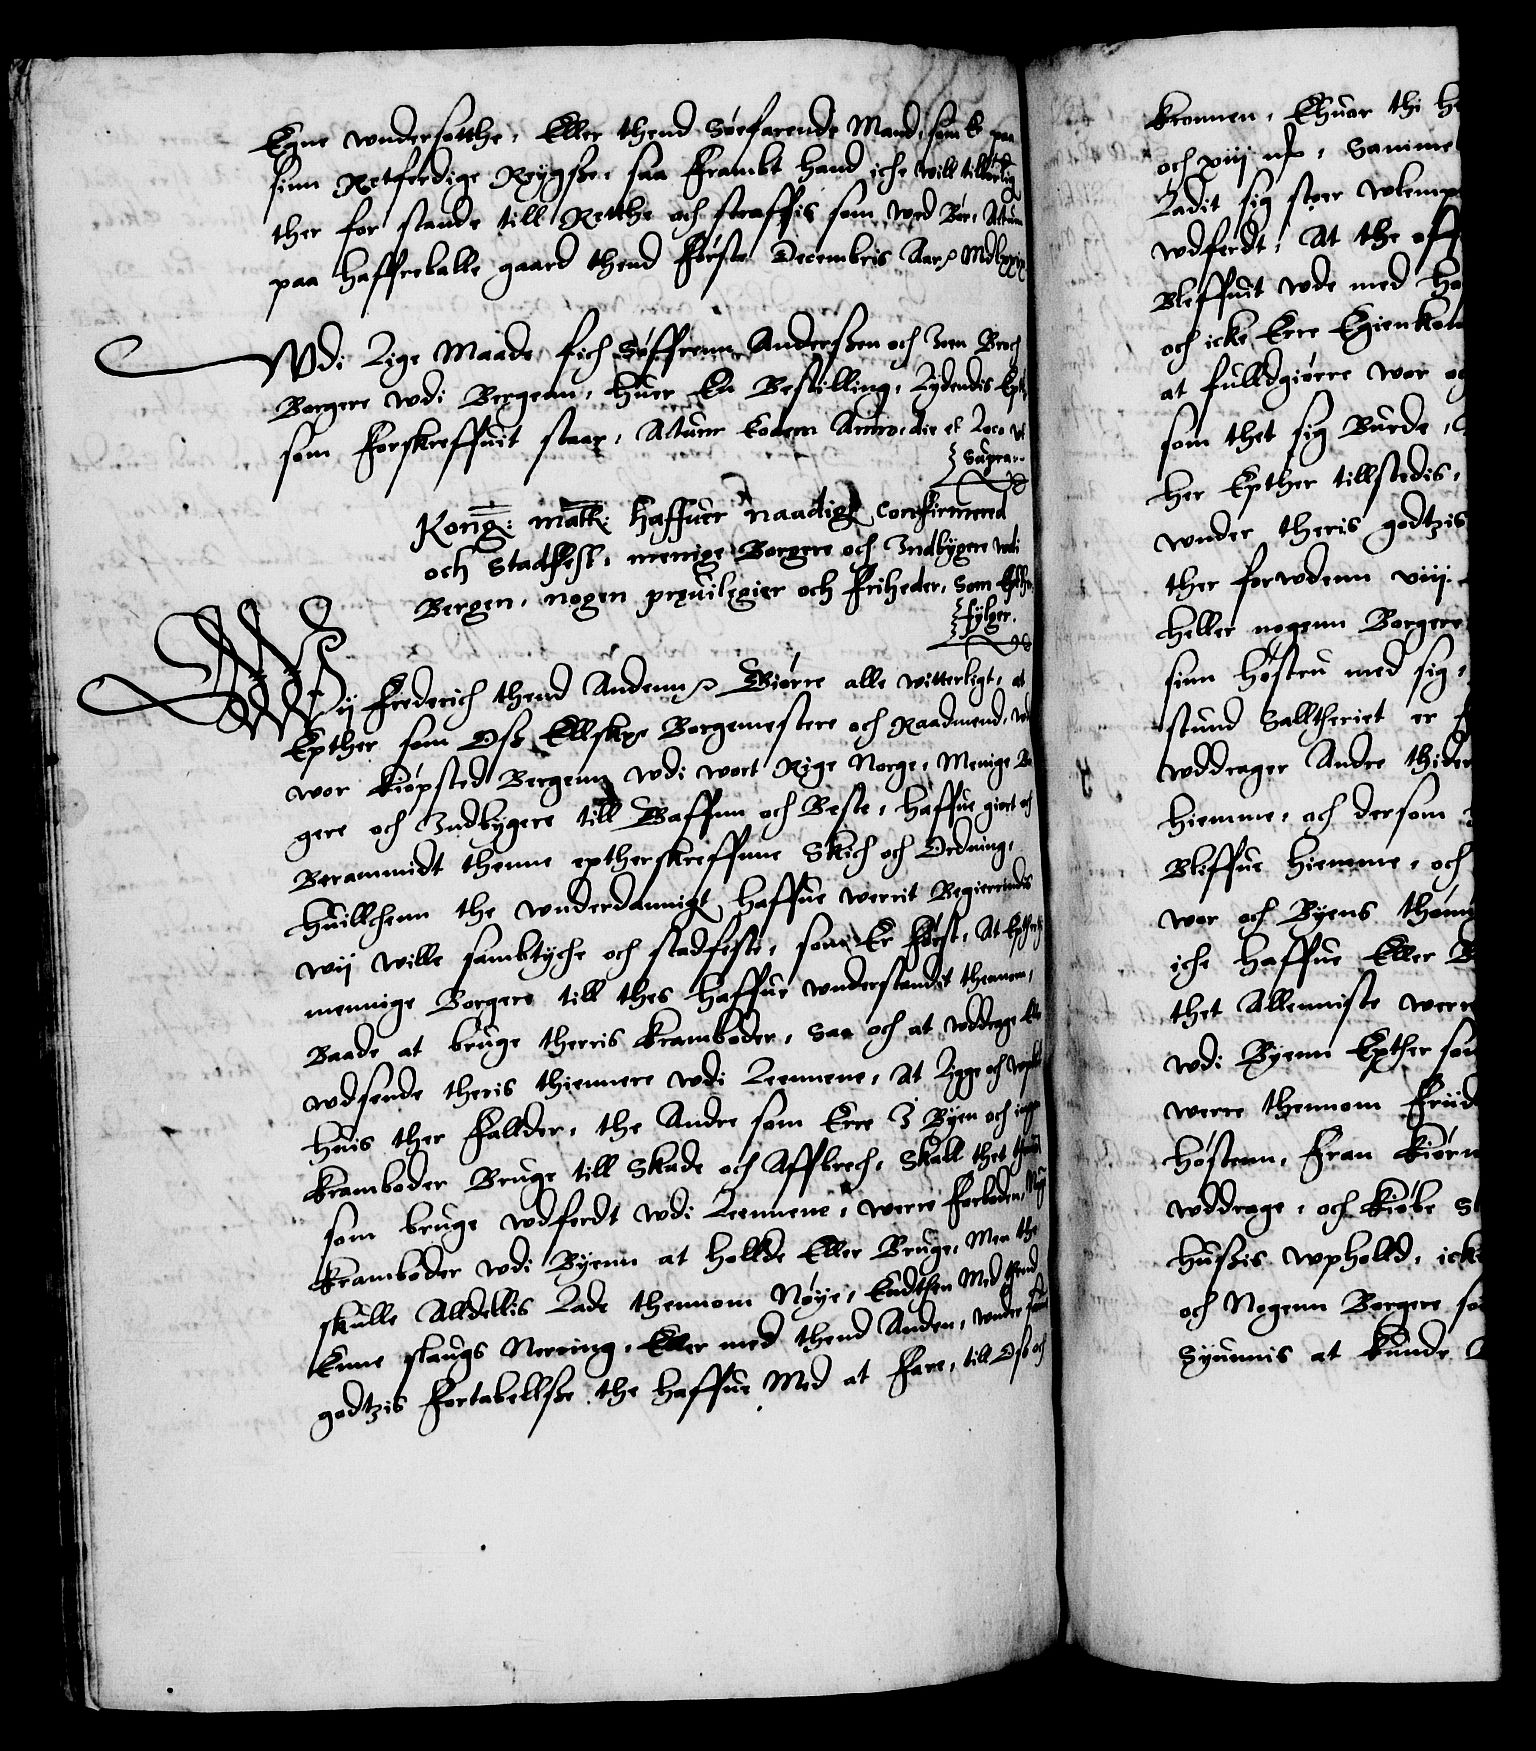 Egne wndersotthe, Eller thend Søefarende Mand, som er paa
sinn Retferdige Reygsze, saa frambt hand iche will tilbørlig
ther for stande till Retthe och straffis som wed Bør, Actum
paa Haffreballe gaard thend første Decembris Aar &c. Mdlxxix
Wdi Lige Maade fich Søffrenn Anderszen och Jenn Broch
Borgere wdi Bergenn, huer En Bestilling, Lydendis Epther
som forskreffuit staar, Actum Eodem Anno, die et Loco ut
Supra
Kong: Matt: Haffuer naadigst Confirmered
och Stadfest, menige Borgere och Indbygere wdi
Bergen, nogen preuilegier och friheder, Som Epther
følger.
Wij Frederich thend Andenn &c. Giørre alle witterligt, at
Epther som Osz Elskee Borgemestere och Raadmend, wdi
wor Kiøpsted Bergenn wdi wort Rige Norge, Menige Bor
gere och Indbygere till Gaffnn och Beste, haffue giort och
Berammidt thenne eptherskreffnne Skich och Ordning,
Huillchenn the wnderdannigst haffue werrit Begierrindis
wij wille sambtyche och stadfeste, som Er først, At Epther
mennige Borgere till thes haffue wnderstandit thennem,
Baade at bruge therris kramboder, saa och at wddrage Eller
wdsende theris thiennere wdi Leenene, At Ligge och
huis ther falder, the Andre som Erre I Byen och ingen
kramboder Bruge till Skade och Affbrech, Skall thet thennem
som bruge wdferdt wdi Leennene, werre forboden,
kramboder wdi Byenn at hollde Eller Bruge, Men the
skulle Alldellis Lade thennom Nøye, Endthen Med thend
Enne slaugs Nerring, Eller med thend Anden, wnder sinn
godtzis fortabellsze the haffue Med at fare, till Osz och
kronnen, Ehuor thi
och xiiij
Samme
Ladit sig stoer wlemp
wdferdt, At the
Bleffuit wde med
och icke Erre Egienkom
at fulldgiørre wor
som thet sig Burde,
her Epther tillstedis,
wnder theris godtzis
ther forwdenn viij
heller nogenn Borgere
sinn høstru med sig,
stund Salltheriet er
wddrager Andre thider
hiemme, och dersom
Bliffue hiemme, och
wor och Byens
iche haffue Eller
thet Allenniste werre
wdi Byenn Epther som
werre thennom
Høstenn, fran
wddrage, och kiøbe
huszis wphold, icke
och Nogenn Borgere
Syunnis at kunde